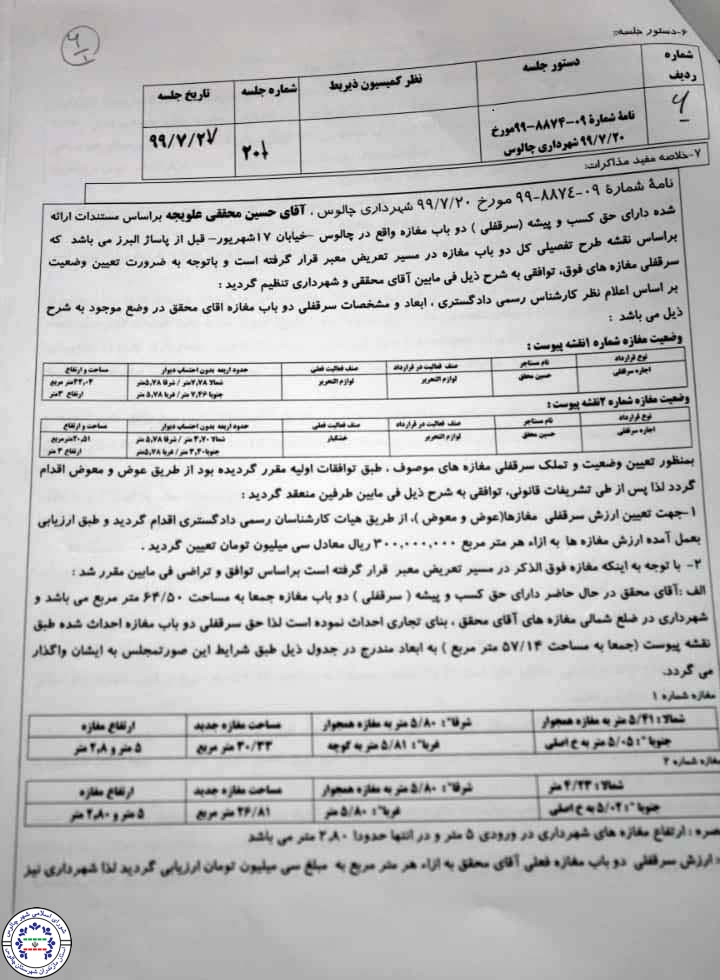 ۶-دستور جلسه:
شماره ردیف | دستور جلسه | نظر کمیسیون ذیربط | شماره جلسه | تاریخ جلسه
۶ | نامۀ شمارۀ ۰۹-۸۸۷۴-۹۹مورخ ۹۹/۷/۲۰ شهرداری چالوس | | ۲۰۱ | ۹۹/۷/۲۷
۷-خلاصه مفید مذاکرات:
نامۀ شمارۀ ۰۹-۸۸۷۴-۹۹ مورخ ۹۹/۷/۲۰ شهرداری چالوس ، آقای حسین محققی علویجه براساس مستندات ارائه
شده دارای حق کسب و پیشه (سرقفلی ) دو باب مغازه واقع در چالوس -خیابان ۱۷شهریور- قبل از پاساژ البرز می باشد که
براساس نقشه طرح تفصیلی کل دو باب مغازه در مسیر تعریض معبر قرار گرفته است و باتوجه به ضرورت تعیین وضعیت
سرقفلی مغازه های فوق، توافقی به شرح ذیل فی مابین آقای محققی و شهرداری تنظیم گردید :
بر اساس اعلام نظر کارشناس رسمی دادگستری ، ابعاد و مشخصات سرقفلی دو باب مغازه اقای محقق در وضع موجود به شرح
ذیل می باشد :
وضعیت مغازه شماره ۱نقشه پیوست :
نوع قرارداد | نام مستاجر | صنف فعالیت در قرارداد | صنف فعالیت فعلی | حدود اربعه بدون احتساب دیوار | مساحت و ارتفاع
اجاره سرقفلی | حسین محقق | لوازم التحریر | لوازم التحریر | شمالا ۷٫۷۸ متر / شرقا ۵٫۷۸متر | ۴۳٫۰۴متر مربع
جنوبا ۷٫۴۶ متر / غربا ۵٫۷۸ متر | ارتفاع ۳متر
وضعیت مغازه شماره ۲نقشه پیوست :
نوع قرارداد | نام مستاجر | صنف فعالیت در قرارداد | صنف فعالیت فعلی | حدود اربعه بدون احتساب دیوار | مساحت و ارتفاع
اجاره سرقفلی | حسین محقق | لوازم التحریر | خشکبار | شمالا ۳٫۷۰ متر / شرقا ۵٫۷۸ متر | ۲۰٫۵۱مترمربع
جنوبا۳٫۴۰ متر / غربا ۵٫۷۸متر | ارتفاع ۳ متر
بمنظور تعیین وضعیت و تملک سرقفلی مغازه های موصوف ، طبق توافقات اولیه مقرر گردیده بود از طریق عوض و معوض اقدام
گردد لذا پس از طی تشریفات قانونی، توافقی به شرح ذیل فی مابین طرفین منعقد گردید :
۱-جهت تعیین ارزش سرقفلی مغازها(عوض و معوض )، از طریق هیات کارشناسان رسمی دادگستری اقدام گردید و طبق ارزیابی
بعمل آمده ارزش مغازه ها به ازاء هر متر مربع ۳۰۰,۰۰۰,۰۰۰ ریال معادل سی میلیون تومان تعیین گردید .
۲- با توجه به اینکه مغازه فوق الذکر در مسیر تعریض معبر قرار گرفته است براساس توافق و تراضی فی مابین مقرر شد :
الف :آقای محقق در حال حاضر دارای حق کسب و پیشه ( سرقفلی ) دو باب مغازه جمعا به مساحت ۶۴/۵۰ متر مربع می باشد و
شهرداری در ضلع شمالی مغازه های آقای محقق ، بنای تجاری احداث نموده است لذا حق سرقفلی دو باب مغازه احداث شده طبق
نقشه پیوست (جمعا به مساحت ۵۷/۱۴ متر مربع ) به ابعاد مندرج در جدول ذیل طبق شرایط این صورتمجلس به ایشان واگذار
می گردد.
مغازه شماره ۱
شمالا : ۵/۴۱ متر به مغازه همجوار | شرقا": ۵/۸۰ متر به مغازه همجوار | مساحت مغازه جدید | ارتفاع مغازه
جنوبا ": ۵/۰۵ متر به خ اصلی | غربا": ۵/۸۱ متر به کوچه | ۳۰/۳۳ متر مربع | ۵ متر و ۲٫۸ متر
مغازه شماره ۲
شمالا : ۴/۲۳ متر | شرقا": ۵/۸۰ متر به مغازه همجوار | مساحت مغازه جدید | ارتفاع مغازه
جنوبا ": ۵/۰۲ به خ اصلی | غربا": ۵/۸۰ متر | ۲۶/۸۱ متر مربع | ۵ متر و ۲٫۸۰ متر
بصره : ارتفاع مغازه های شهرداری در ورودی ۵ متر و در انتها حدودا ۲٫۸۰ متر می باشد
: ارزش سرقفلی دو باب مغازه فعلی آقای محقق به ازاء هر متر مربع به مبلغ سی میلیون تومان ارزیابی گردید لذا شهرداری نیز
شورای اسلامی شهر چالوس
استان مازندران شهرستان چالوس